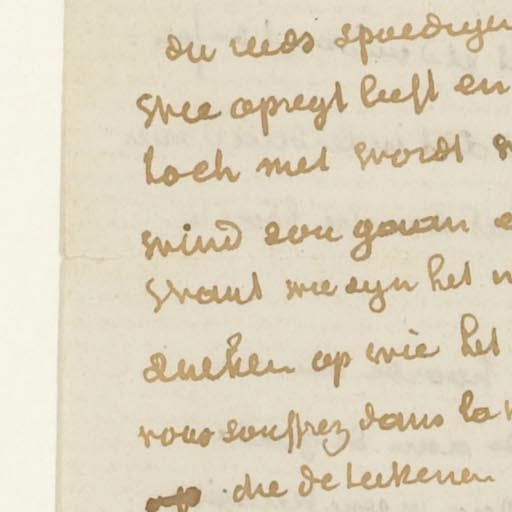 du reeds spoedigen
Wie opregt leeft en
toch met wordt
wind zou gaan
Want we zyn het
zueken op wie het
vous souffrez dans la
op die de teekenen